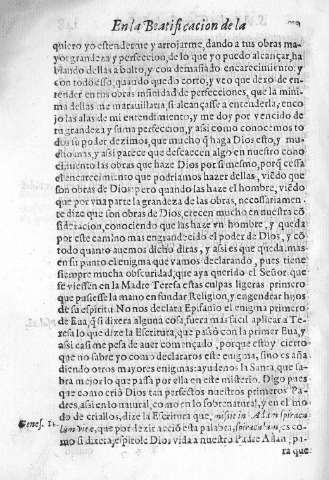 En la Beatificacion de la
quiero yo estenderme y arrojarme, dando a tus obras ma-
yor grandeza y perfeccion, de lo que yo puedo alcançar, ha
blando dellas a bolto, y con demasiado encarecimiento, y
con todo esso, quando quedo corto, y veo que dexo de en-
tender en tus obras infinidad de perfecciones, que la mini-
ma dellas me marauillara, si alcançasse a entenderla, enco
jo las alas de mi entendimiento, y me doy por vencido de
tu grandeza y suma perfeccion, y assi como conocemos to
do su poder dezimos, que mucho q̃ haga Dios esto, y mu-
cho mas, y assi parece que descaecen algo en nuestro cono
cimiento las obras que haze Dios por si mesmo, porq̃ cessa
el encarecimiento que podriamos hazer dellas, viẽdo que
son obras de Dios: pero quando las haze el hombre, viẽdo
que por vna parte la grandeza de las obras, necessariamen-
te dize que son obras de Dios, crecen mucho en nuestra cõ
sideracion, conociendo que las haze vn hombre, y queda
por este camino mas engrandecido el poder de Dios, y cõ
todo quanto auemos dicho dizis, y assi es que queda mas
en su punto el enigma que vamos declarando, pues tiene
siempre mucha obscuridad, que aya querido el Señor que
se viessen en la Madre Teresa estas culpas ligeras primero
que pusiesse la mano en fundar Religion, y engendrar hijos
de su espiritu. No nos declara Epifanio el enigma primero
de Eua, q̃ si dixera alguna cosa, fuera mas facil aplicar a Te-
resa lo que dize la Escritura, que passò con la primer Eua, y
assi casi me pesa de auer començado, porque estoy cierto
que no sabre yo como declararos este enigma, sino es aña
diendo otros mayores enigmas: ayudenos la Santa, que sa-
bra mejor lo que passa por ella en este misterio. Digo pues
que como criò Dios tan perfectos nuestros primeros Pa-
dres, assi en lo natural, como en lo sobrenatural, y en el mo
do de criallos, dize la Escritura que, misit in Adam spiracu
Genes. 2. lum vitæ, que por dezir acciò esta palabra, spiraculum, es co-
mo si dixera, espirole Dios vida a nuestro Padre Adan, pa-
ra que